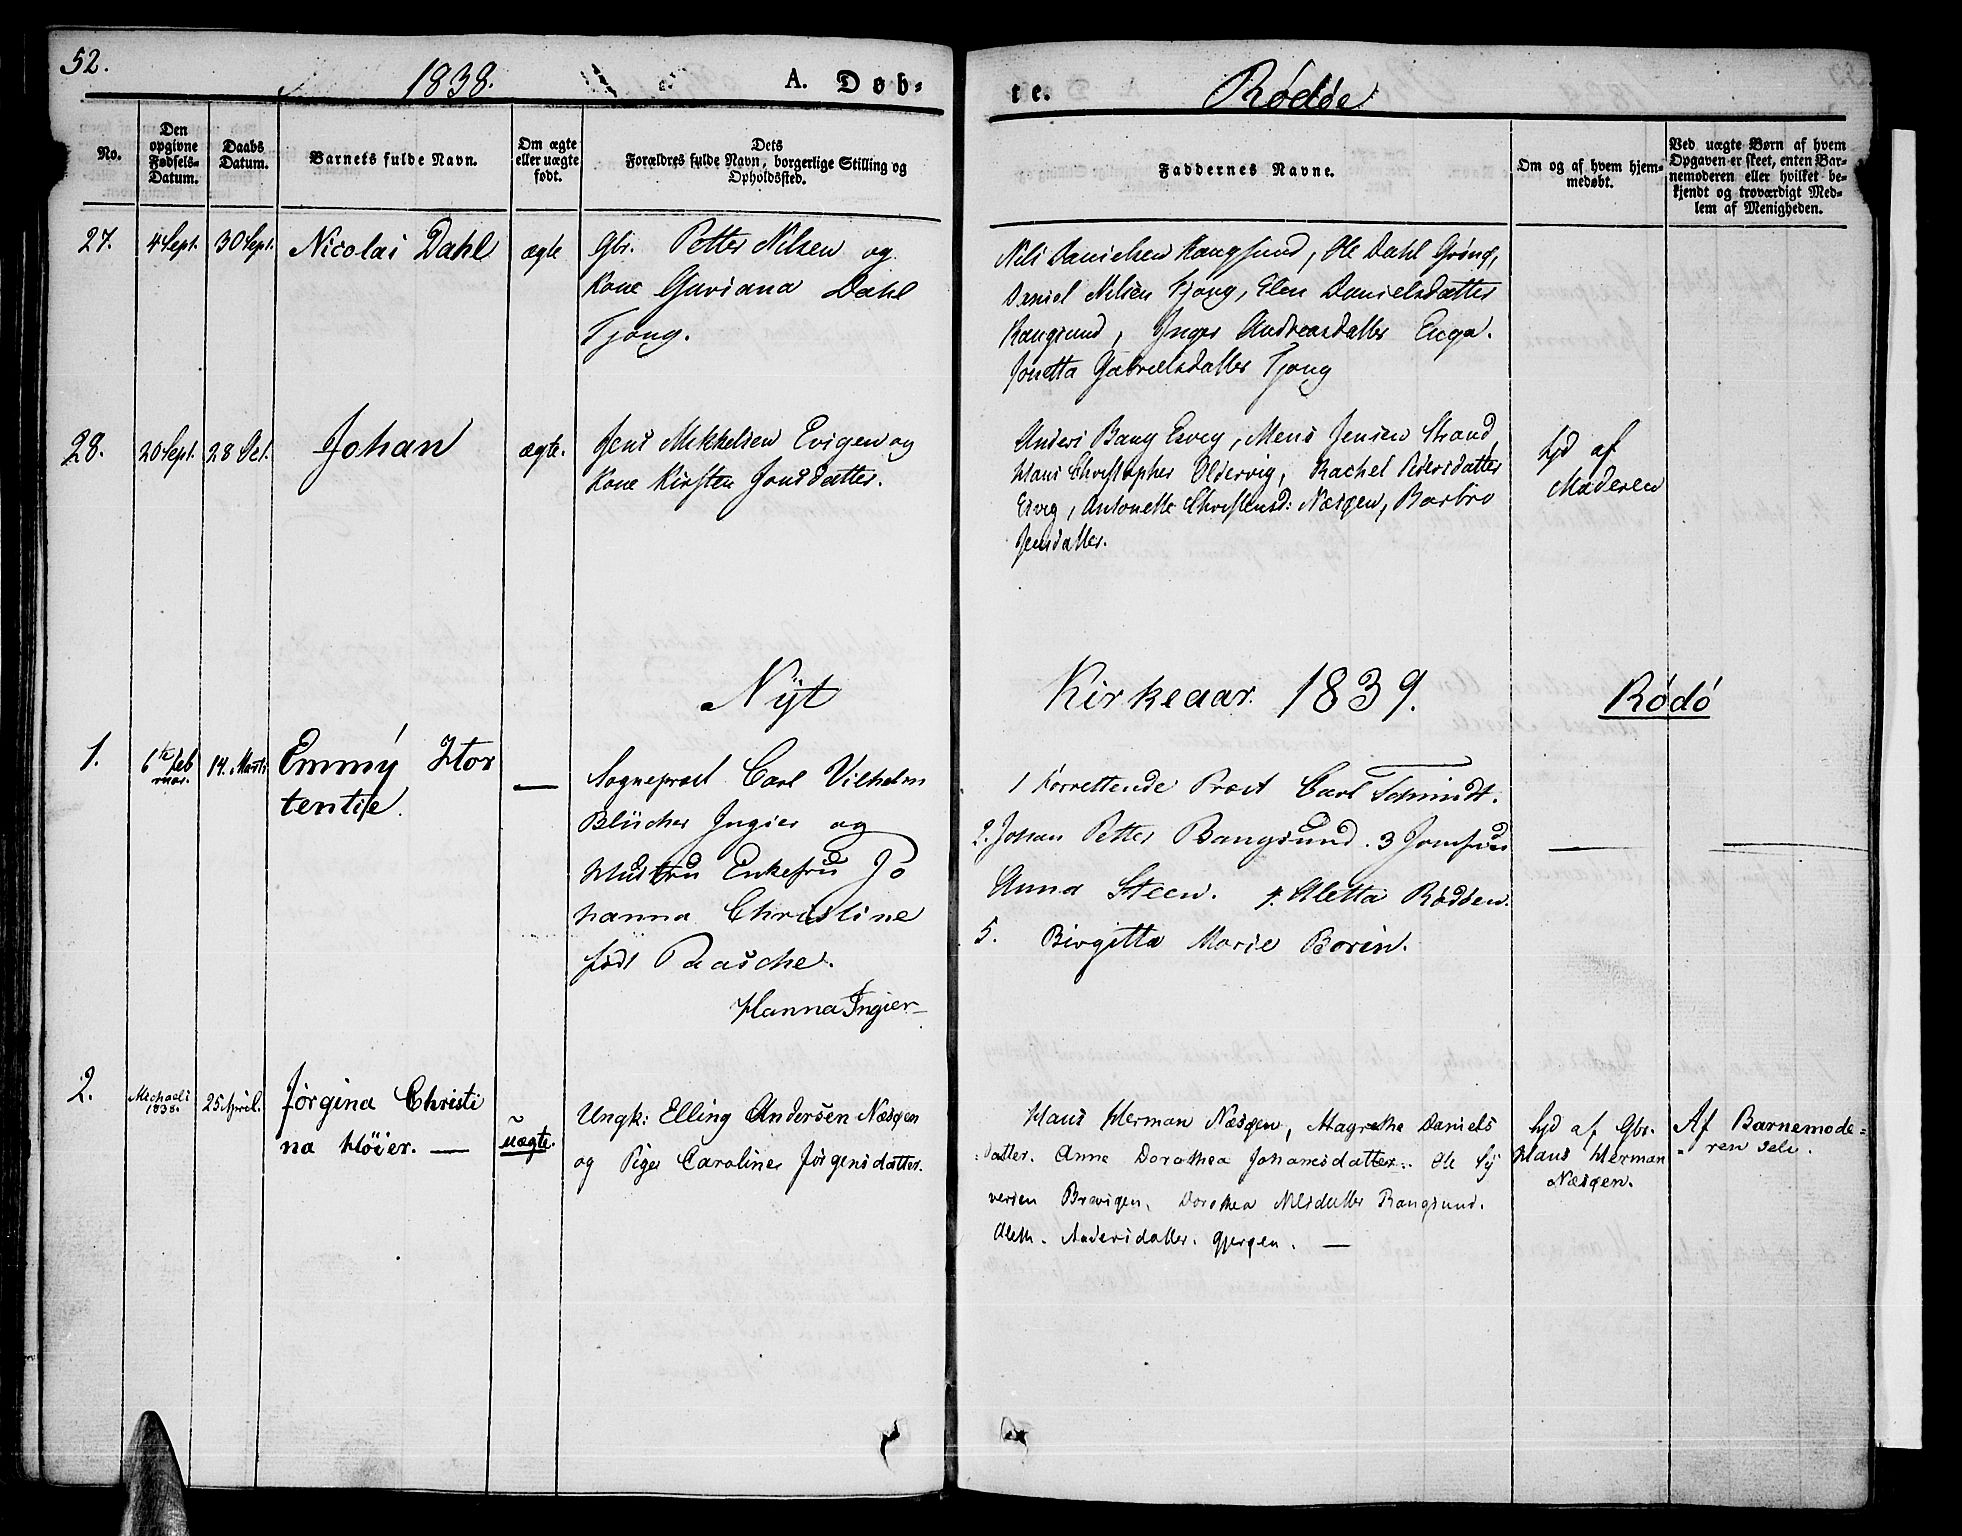 52.
1838.
A. Døb-
te.
Rödöe
No.
Den opgivne Fødsels-Datum.
Daabs Datum.
Barnets fulde Navn.
Om ægte eller uægte født.
Dets Forældres fulde Navn, borgerlige Stilling og Opholdssted.
Faddernes Navne.
Om og af hvem hjemmedøbt.
Ved uægte Børn af hvem Opgaven er skeet, enten Barnemoderen eller hvilket bekjendt og troværdigt Medlem af Menigheden.
27. 4 Sept. 30 Sept. Nicolai Dahl ægte Gbr. Petter Nilsen og
Kone Guriana Dahl
Tjong.
Nils Danielsen Rangsund, Ole Dahl Grönö,
Daniel Nilsen Tjong, Elen Danielsdatter
Rangsund, Inger Andreasdatter Enga.
Jonetta Gabrielsdatter Tjong
28. 20 Sept. 28 Oct. Johan ægte. Jens Mikkelsen Evigen og
Kone Kirsten Jonsdatter.
Anders Bang Esvig, Mens Jensen Strand,
Hans Christopher Oldervig, Rachel Pedersdatter
Esvig, Antonette Christensd: Næsøen, Barbro
Jensdatter.
hjd af
Moderen
Nÿt
Kirkeaar. 1839.
Rödö
1. 6te Feb
ruar. 14. Marti Emmÿ Hor
tentse. —
Sogneprest Carl Vilhelm
Blücher Ingier og
Hustru Enkefru Jo
hanna Christine
født Rasche.
Hanna Ingier—
1 Forrettende Præst Carl Schmidt.
2. Johan Petter Bangsund. 3 Jomfru
Anna Steen. 4. Aletta Rödöen.
5. Birgitta Marie Borin.
2. Michaeli
1838. 25 April. Jörgina Christi
na Höier. — uægte. Ungk: Elling Andersen Næsöen
og Pige Caroline Jörgensdatter.
Hans Herman Næsöen, Magrethe Daniels
datter. Anne Dorothea Johansdatter. Ole Sÿ
versen Brævigen, Dorothea Nilsdatter Rangsund.
Aleth. Andersdatter. Gjerøen. —
hjd af Gbr.
Hans Herman
Næsöen.
Af Barnemode=
ren selv.